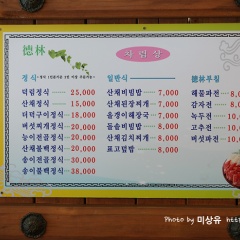 德林
차림상
정식
덕림정식 25,000
산채정식 15,000
더덕구이정식 18,000
버섯찌개정식 20,000
능이전골정식 20,000
산채불백정식 20,000
송이전골정식 30,000
송이불백정식 38,000
일반식
산채비빔밥 7,000
산채된장찌개 7,000
올갱이해장국 7,000
돌솥비빔밥 8,000
산채김치찌개 8,000
표고덮밥 8,000
德林부침
해물파전
감자전
녹두전
고추전
버섯파전
Photo by 미상유